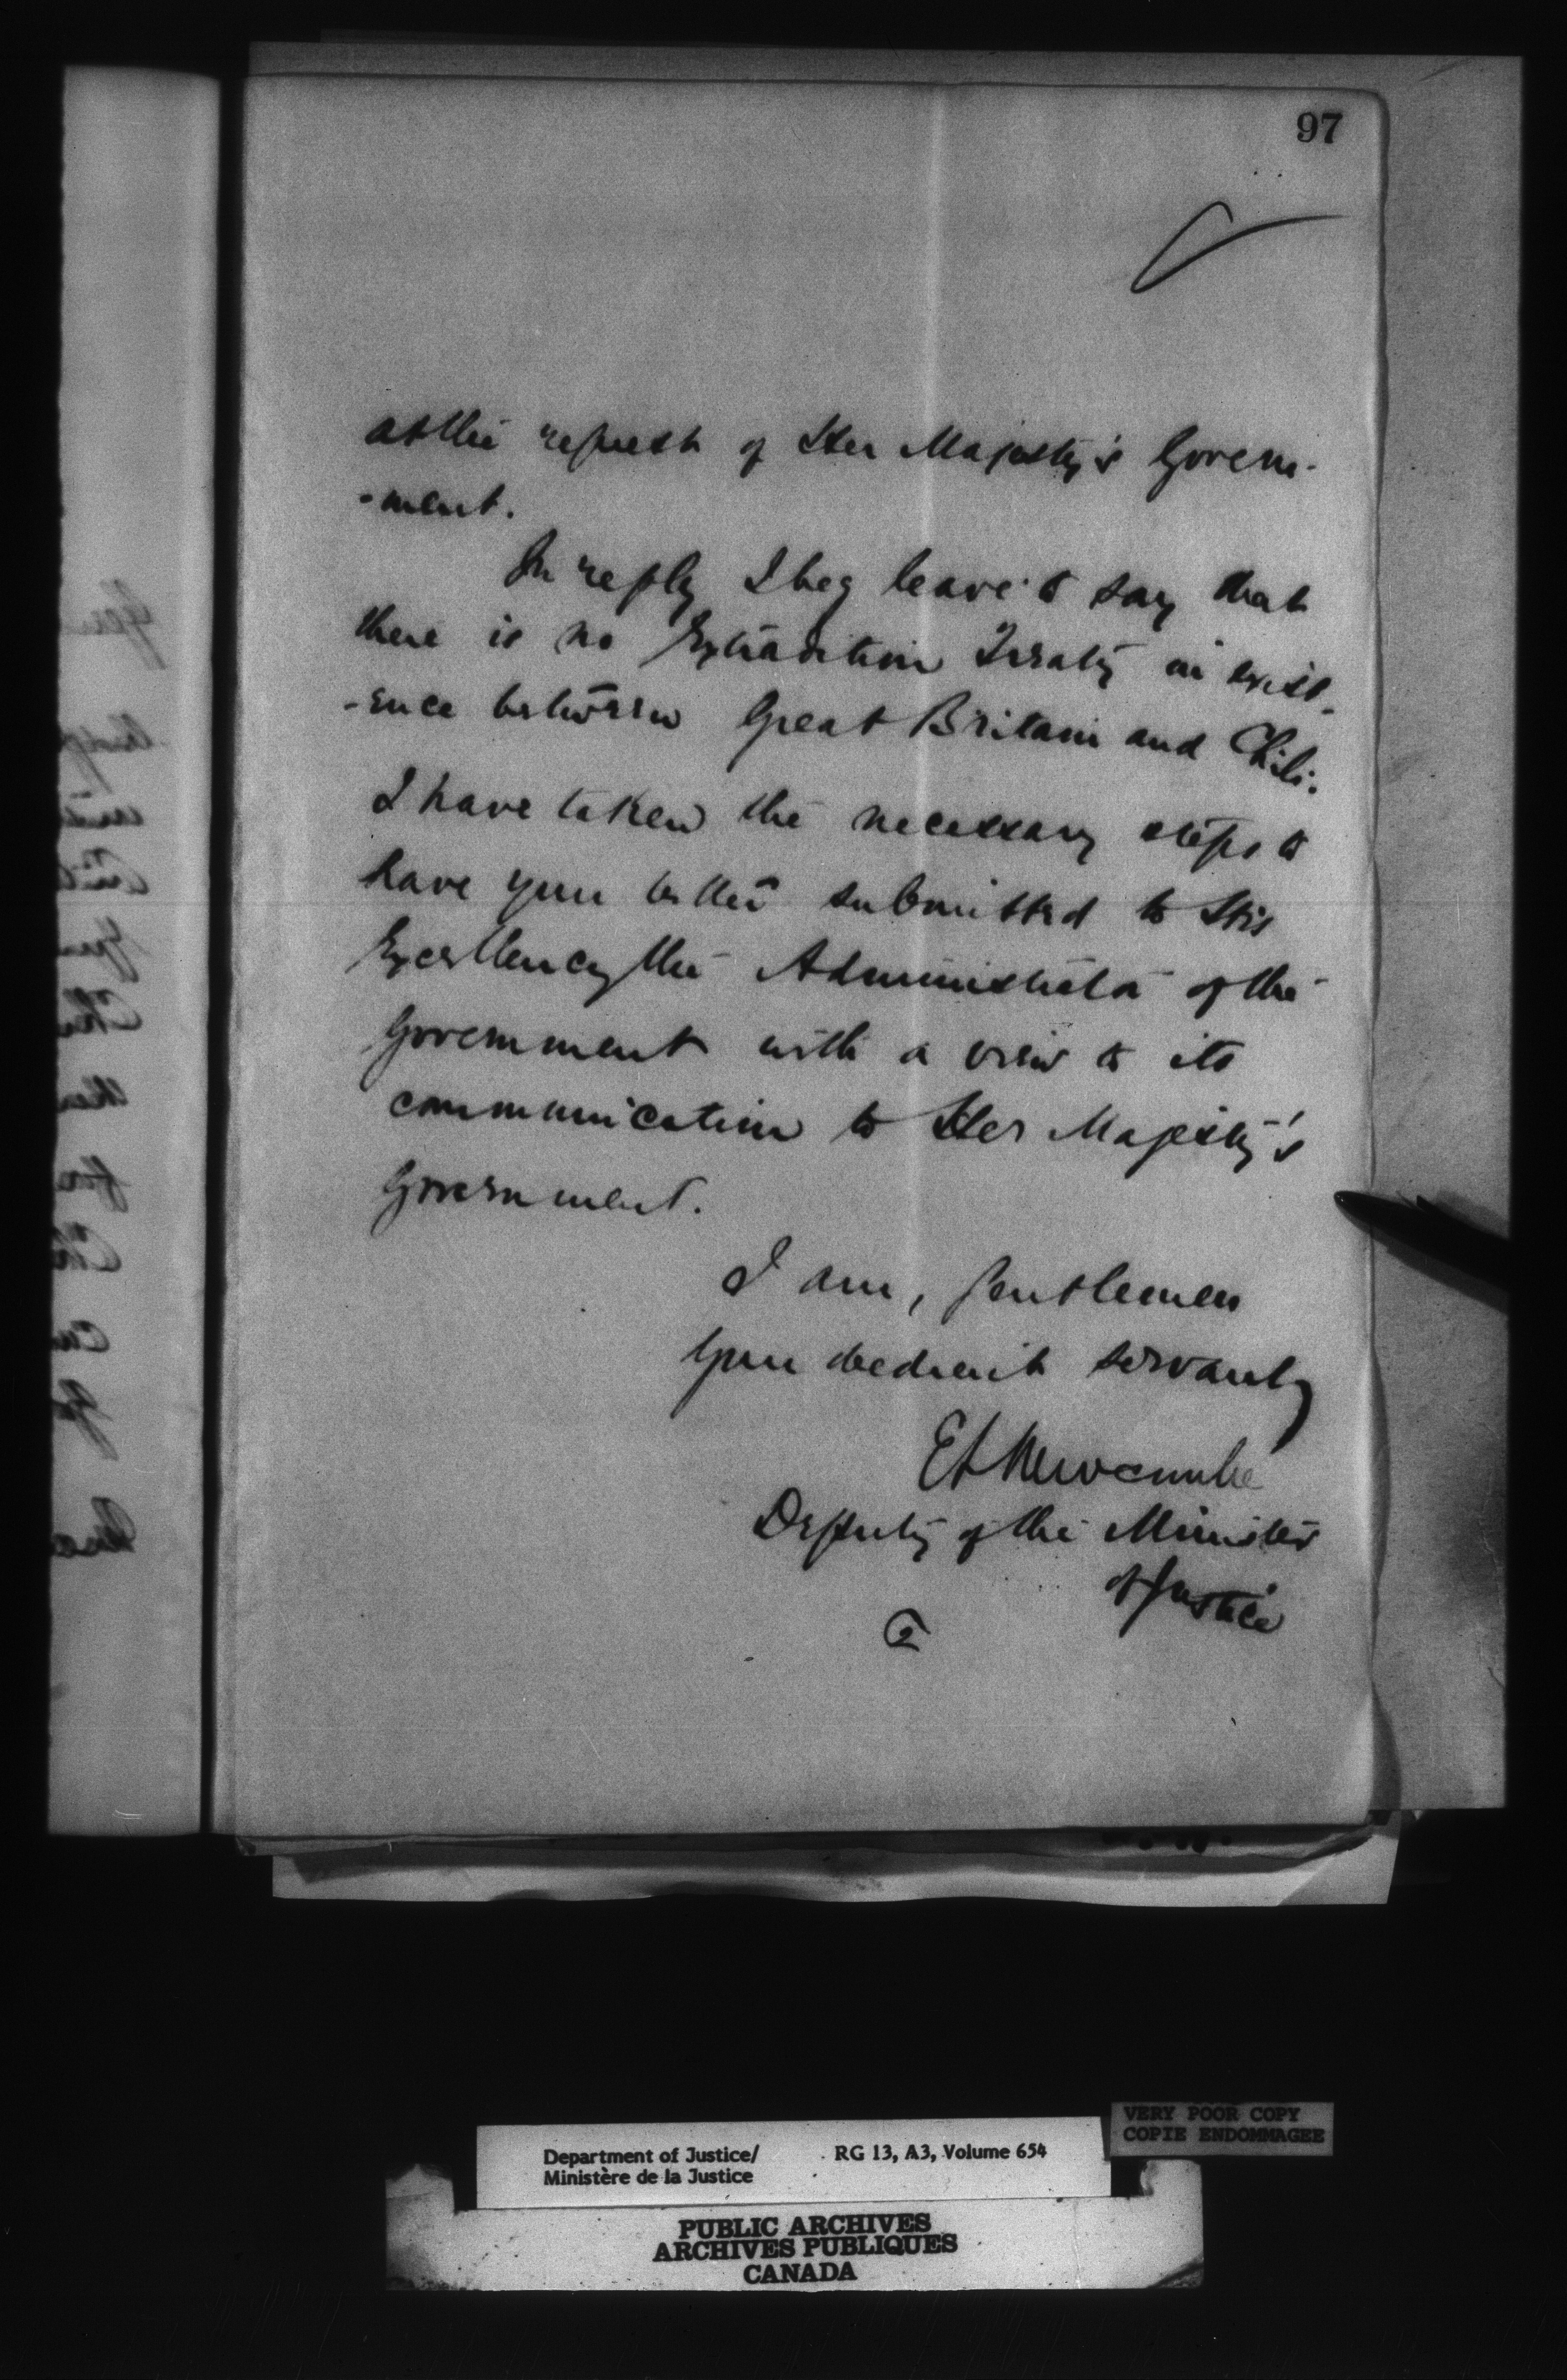 97
at the request of Her Majesty's Govern-
-ment.
In reply I beg leave to say that
there is no Extradition Treaty in exist-
-ence between Great Britain and Chili.
I have taken the necessary steps to
have your letter submitted to His
Excellency the Administrator of the
Government with a view to its
communication to Her Majesty's
Government.
I am, Gentlemen
Your obedient servant,
E L Newcombe
Deputy of the Minister
of Justice
2
VERY POOR COPY
COPIE ENDOMMAGEE
Department of Justice/ RG 13, A3, Volume 654
Ministère de la Justice
PUBLIC ARCHIVES
ARCHIVES PUBLIQUES
CANADA